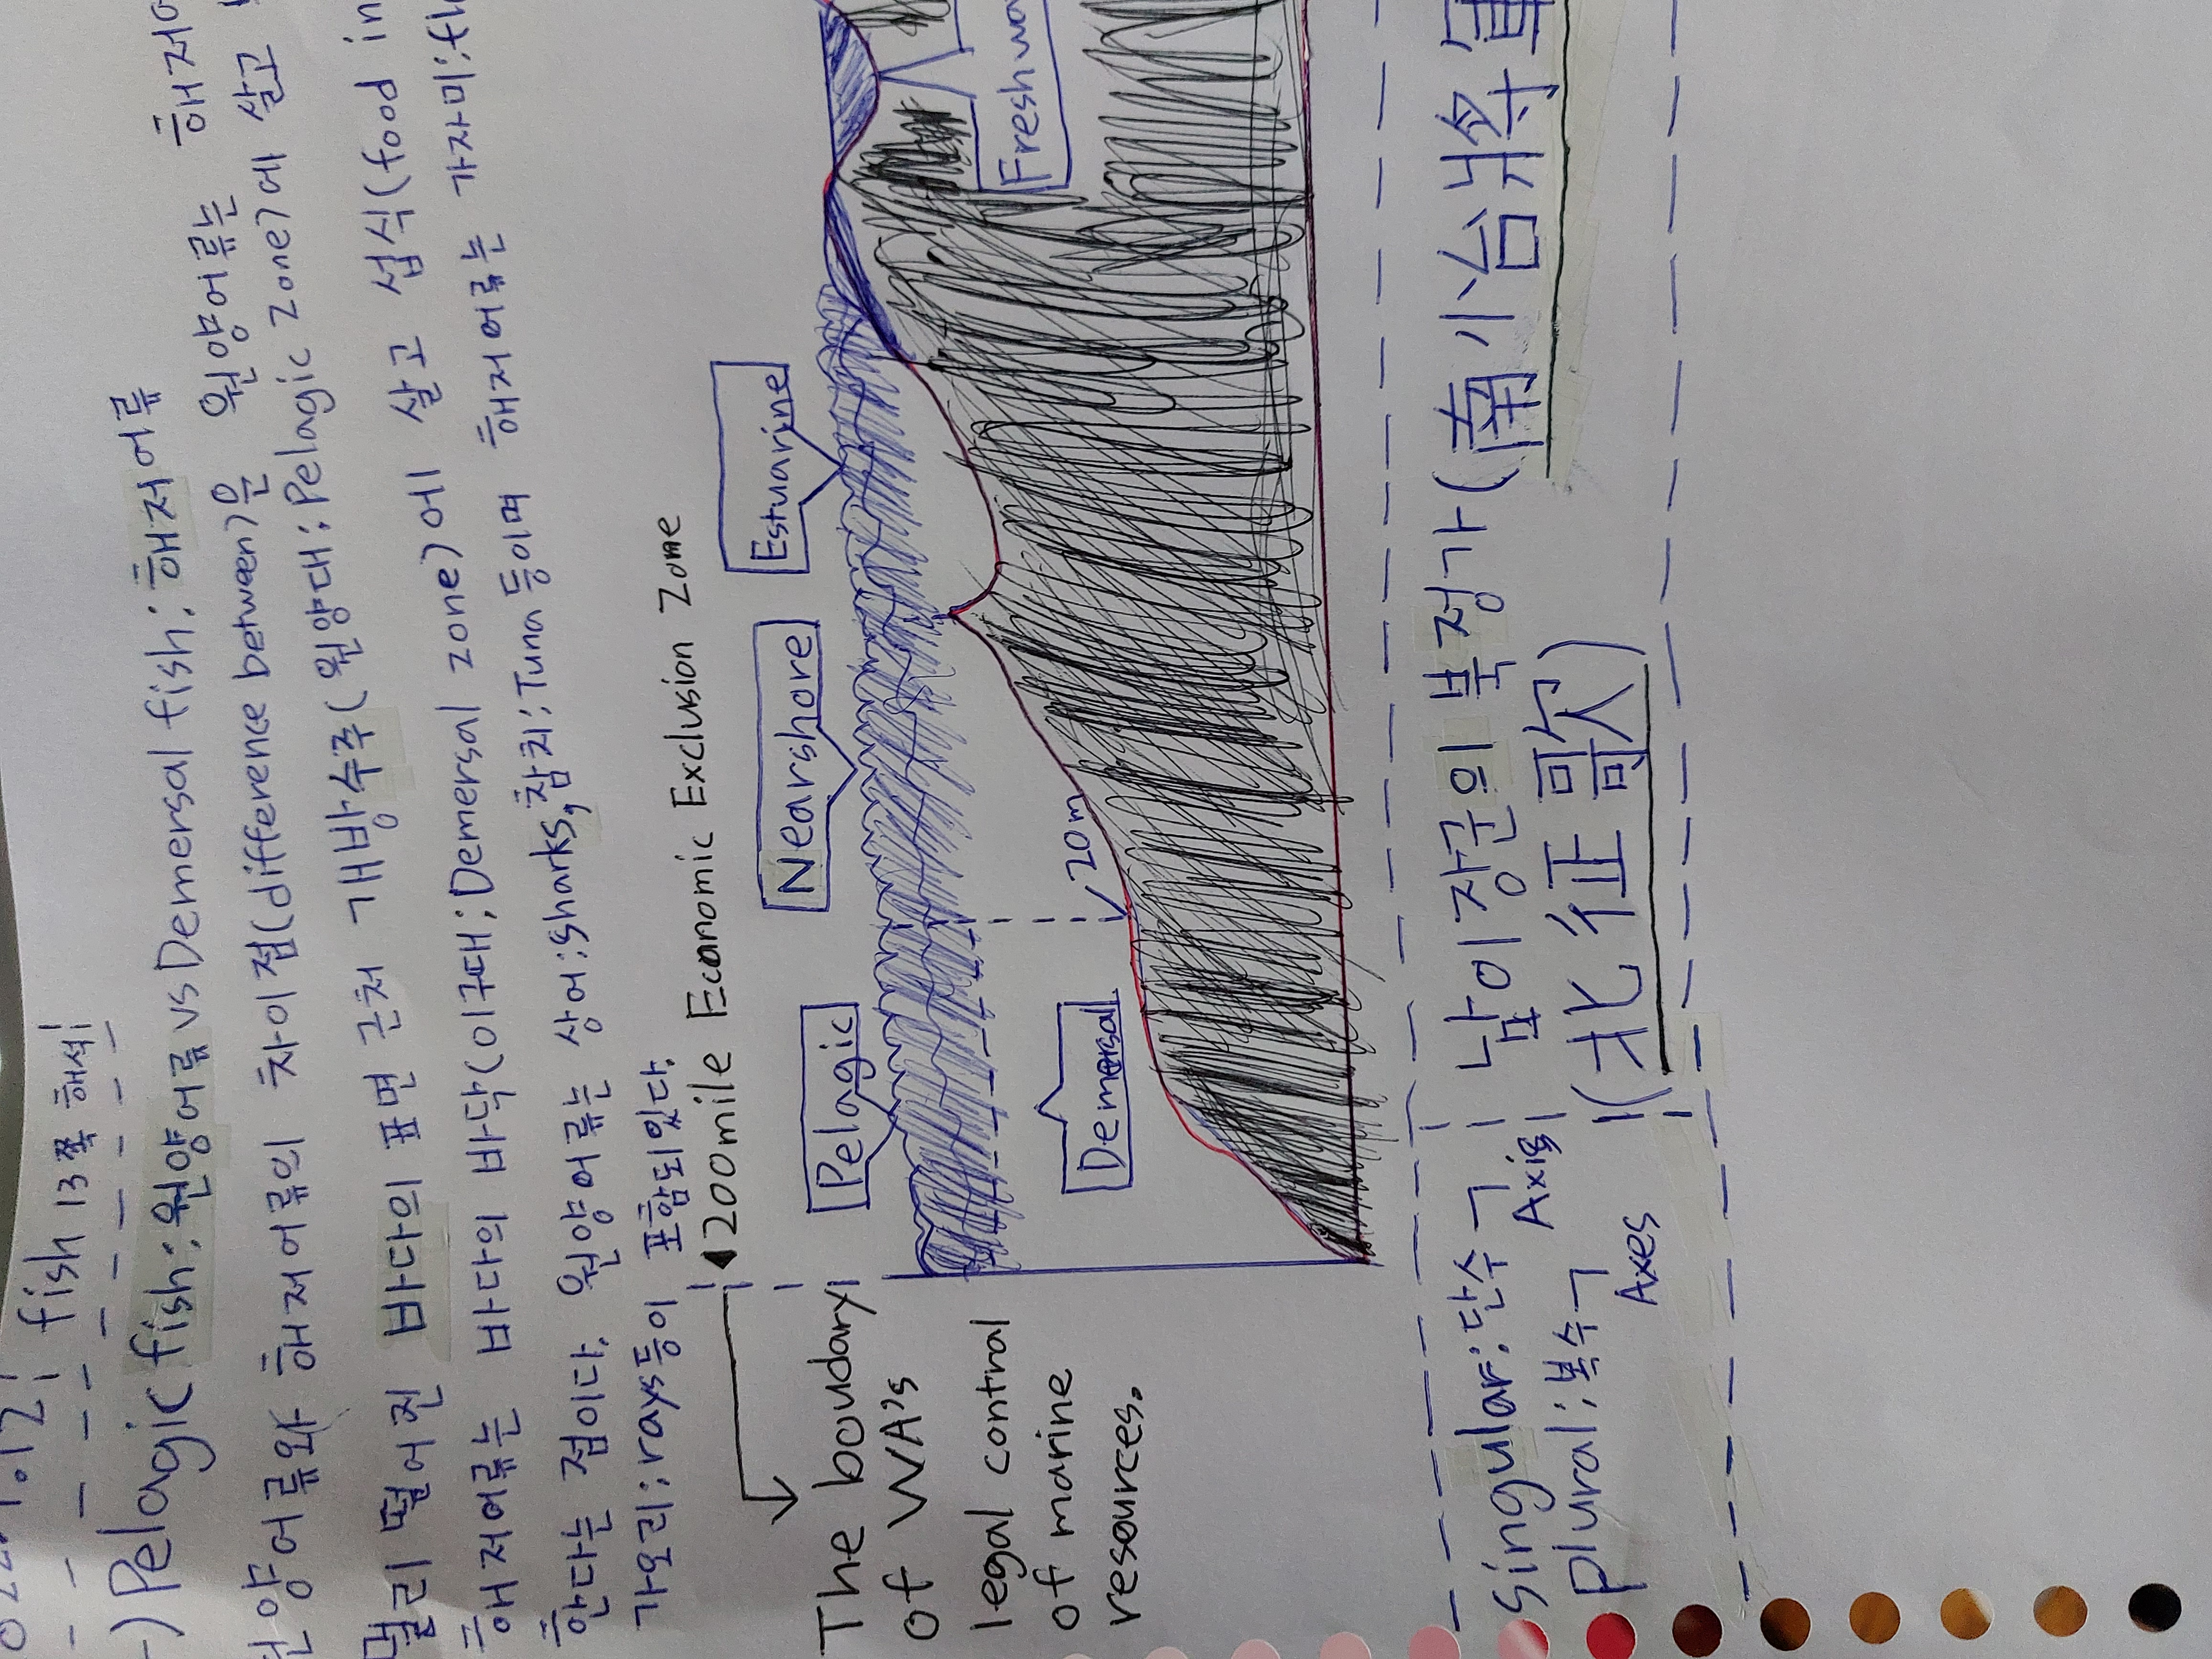 fish 13쪽 해석
Pelagic fish: 원양어류 vs Demersal fish: 해저어류
원양어류와 해저어류의 차이점(difference between)은 원양어류는 해저어
멀리 떨어진 바다의 표면 근처 개방수주(원양대:Pelagic zone)에 살고
해저어류는 바다의 바닥(이구대:Demersal zone)에 살고 섭식(food in
한다는 점이다. 원양어류는 상어:sharks, 참치:Tuna등이며 해저어류는 가자미:fl
가오리:rays등이 포함되있다.
200mile Economic Exclusion Zone
The boundary
of WA's
legal control
of marine
resources.
Pelagic
Nearshore
Estuarine
Freshwa
Demersal
20m
Singular:단수ㄱ Axis
plural:복수ㄱ
Axes
남이장군의 북정가(南小台將軍
(北征歌)